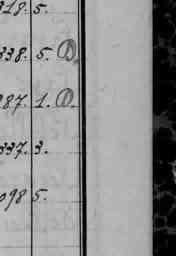 318. 5.
338. 5. Ⓓ.
987. 1. Ⓓ.
337. 3.
098 5.